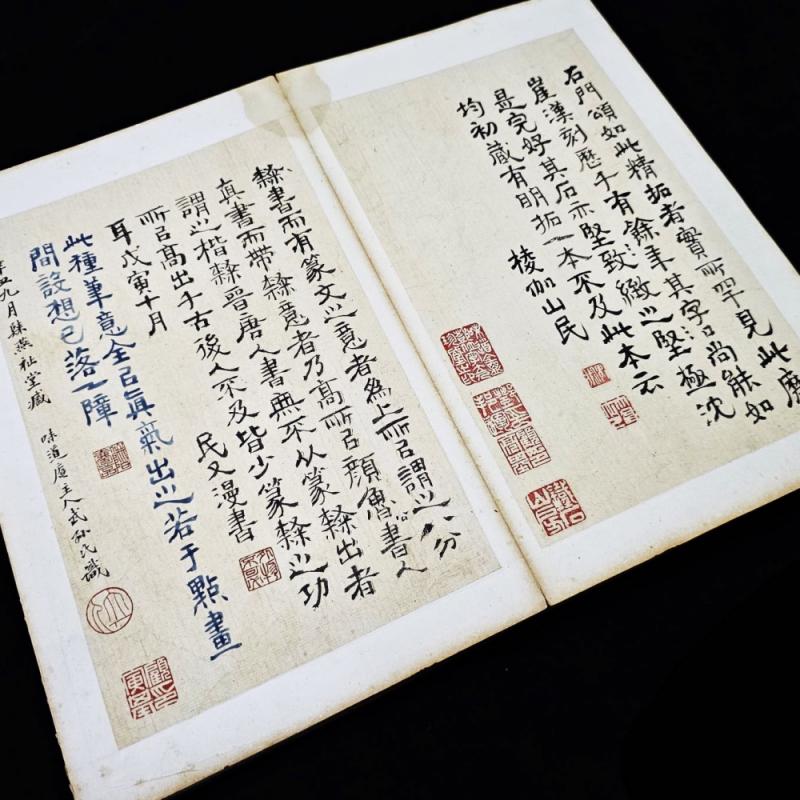 石門頌如此精拓者實所罕見此摩
崖漢刻歷千有餘年其字口尚能如
是完好其石亦堅致緻之堅極沈
均初藏有明拓一本不及此本云
棱伽山民
隸書而有篆文之意者為上所㠯謂之八分
真書而帶隸意者乃高所㠯顏魯書人
謂之楷隸晉唐人書無不从篆隸出者
所㠯高出千古後人不及皆少篆隸之功
耳戊寅十月 民又漫書
此種筆意全㠯真氣出之若于點畫
間設想已落一障
九月 燕祉堂藏 味道廬主人武 氏識